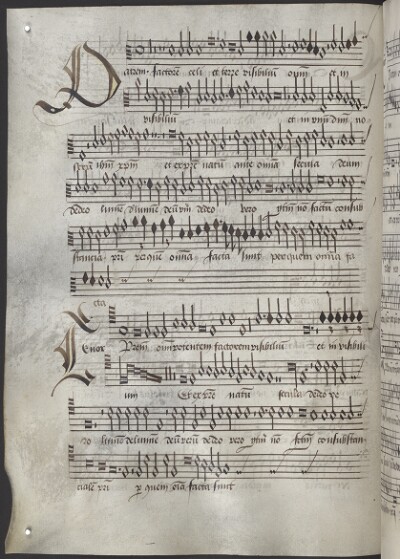 Patrem factorē celi et terre visibiliū oīm et in
visibiliū et in vnū dnm no
strū ihm xpm et ex pre natū ante omīa secula deum
de deo lumē de lumine deū vm de deo vero gtm nō factū consub
stancia pri per que omīa facta sunt per quem omīa fa
cta
Tenor Prem omnipotentem factorem visibiliū et in visibili
um Et ex pre natū secula de deo ve
ro lumē de lumine deū verū de deo vero gtm nō fctm consubstan
ciale pri p quem oīa facta sunt